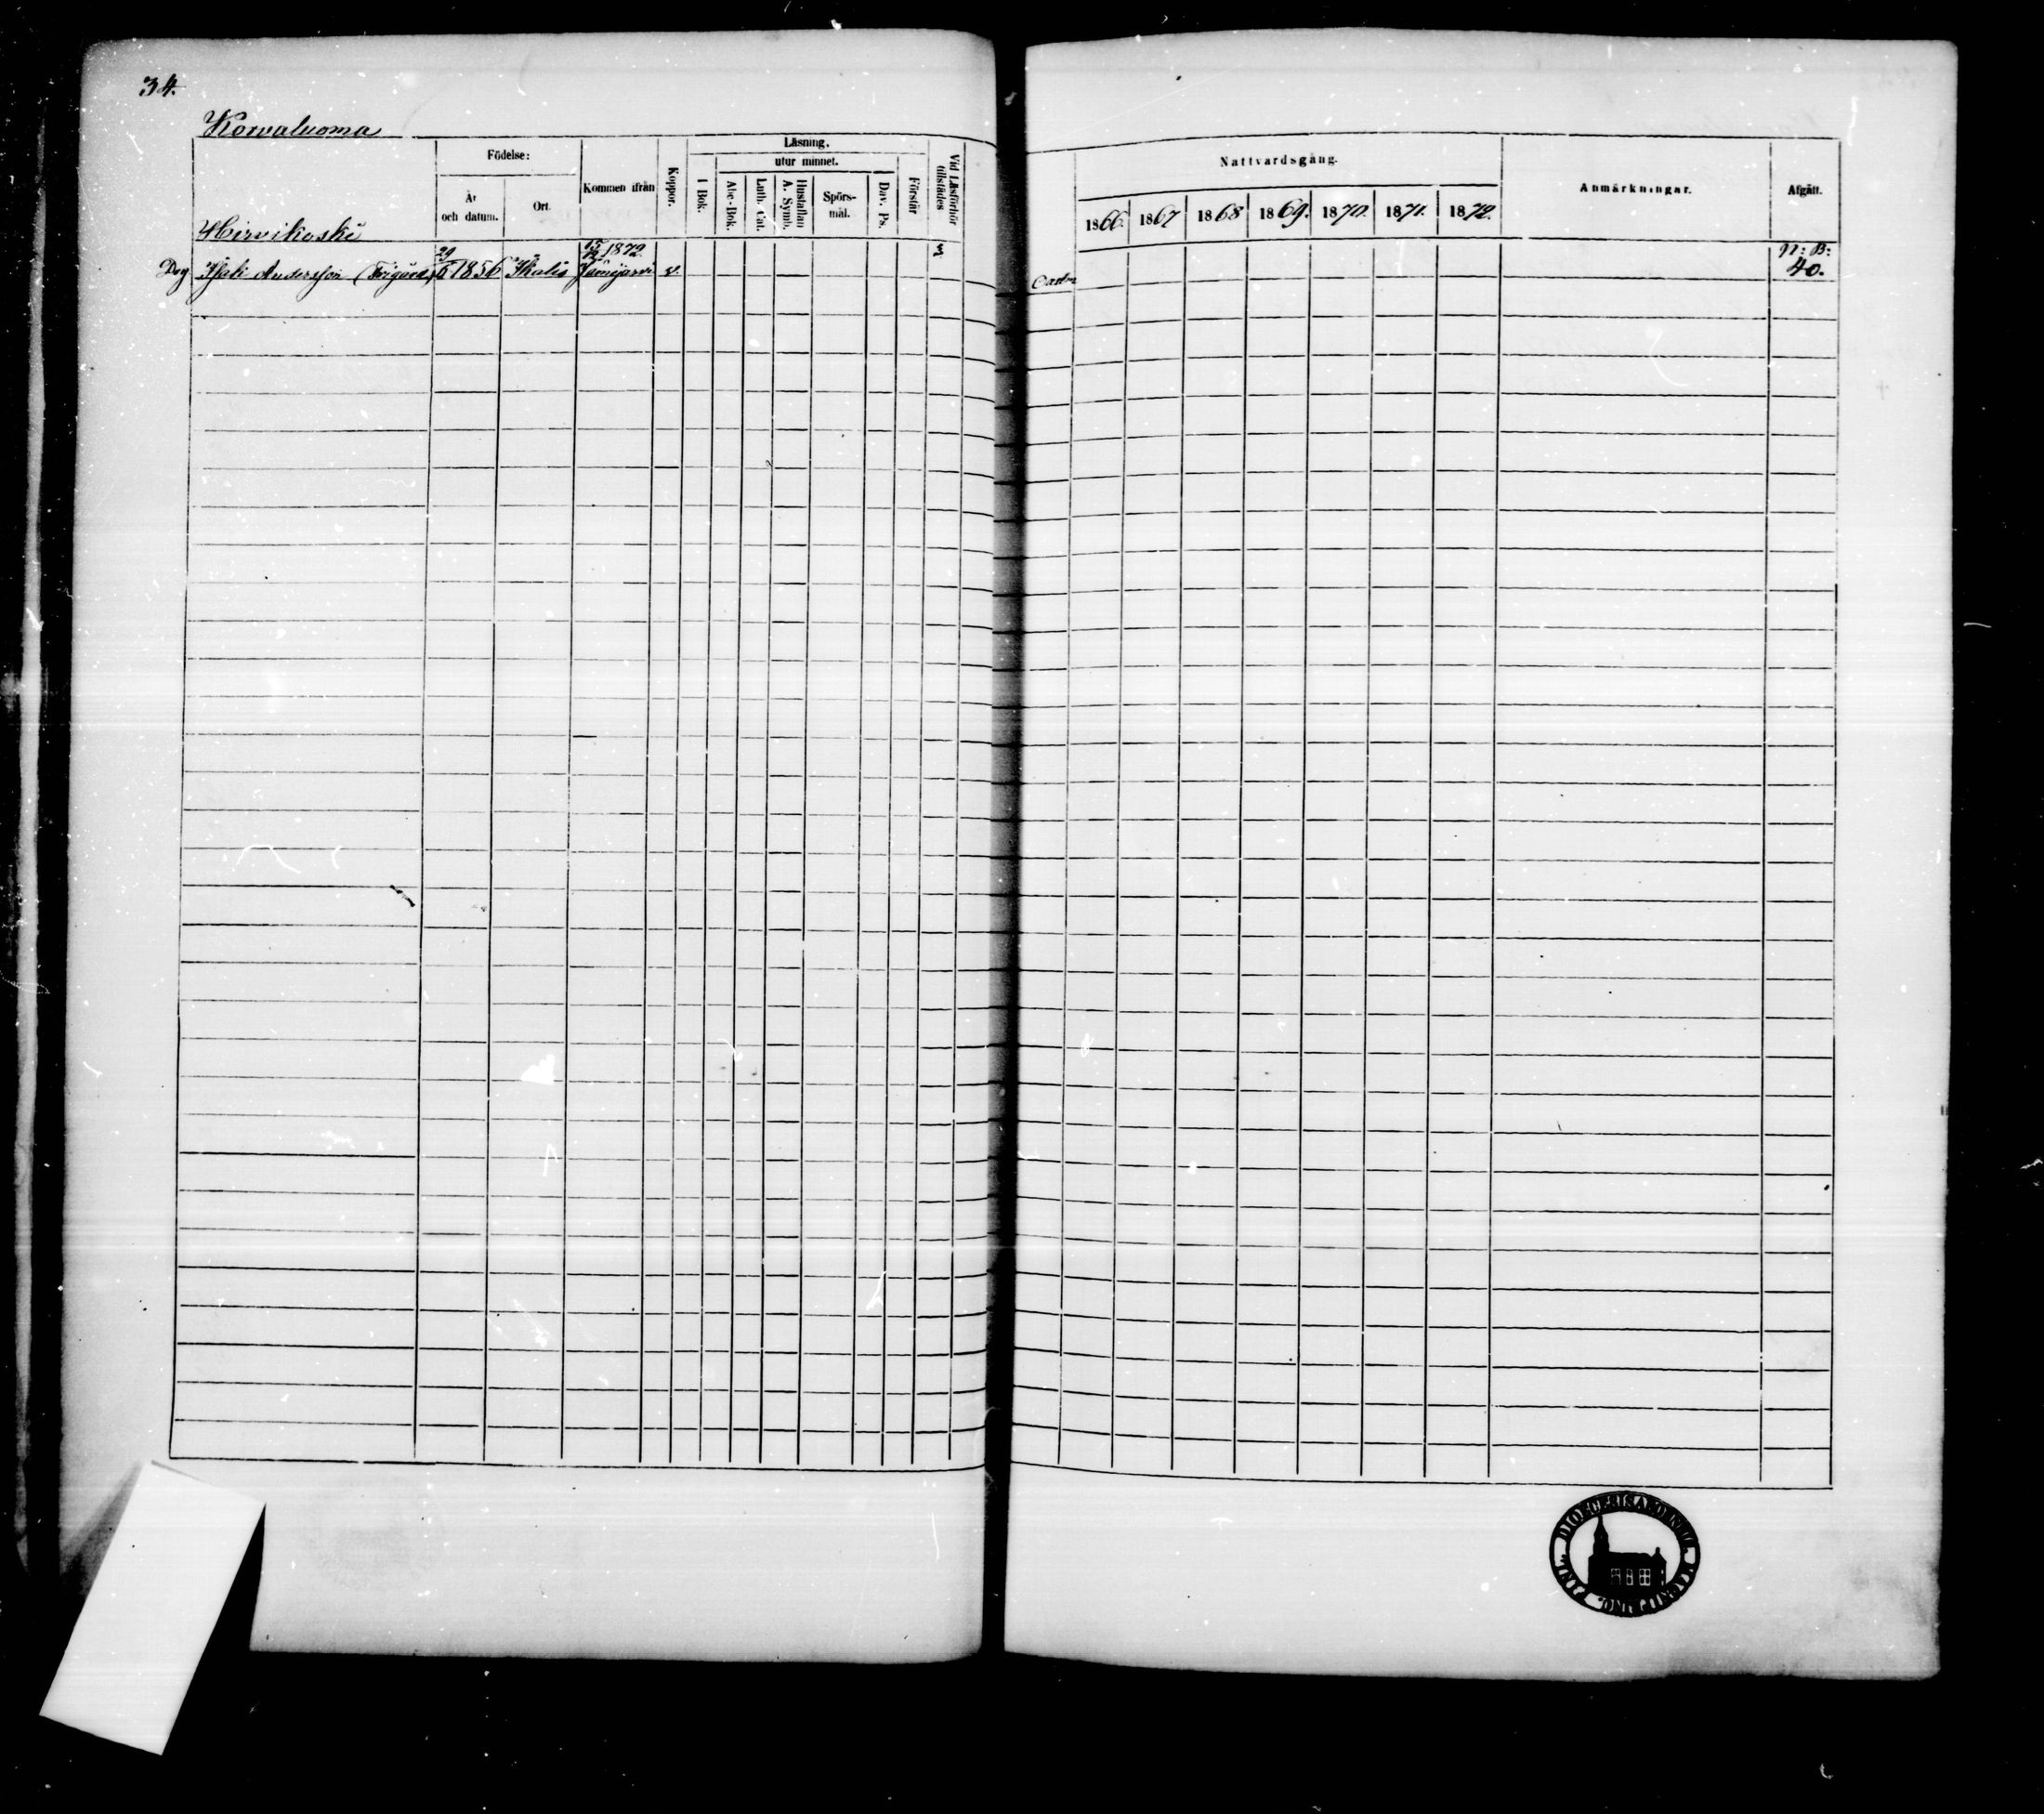 34.
Korvaluoma
Födelse:
År och datum.
Ort.
Kommen ifrån
Koppor.
Läsning.
I Bok.
utur minnet.
Abc-Bok.
Luth. Cat.
Hustaflan A. Symb.
Spörs-mål.
Dav. Ps.
Förstår
Vid Läsförhör tillstädes
Nattvardsgång.
1866. 1867 1868 1869. 1870. 1871. 1872.
Anmärkningar.
Afgått.
Hirvikoski
29 15/12 1872. N: B:
Drg Isak Andersson 6 1856 Ikalis Jämijärvi v. 40.
DIOECESIS ABOENSIS